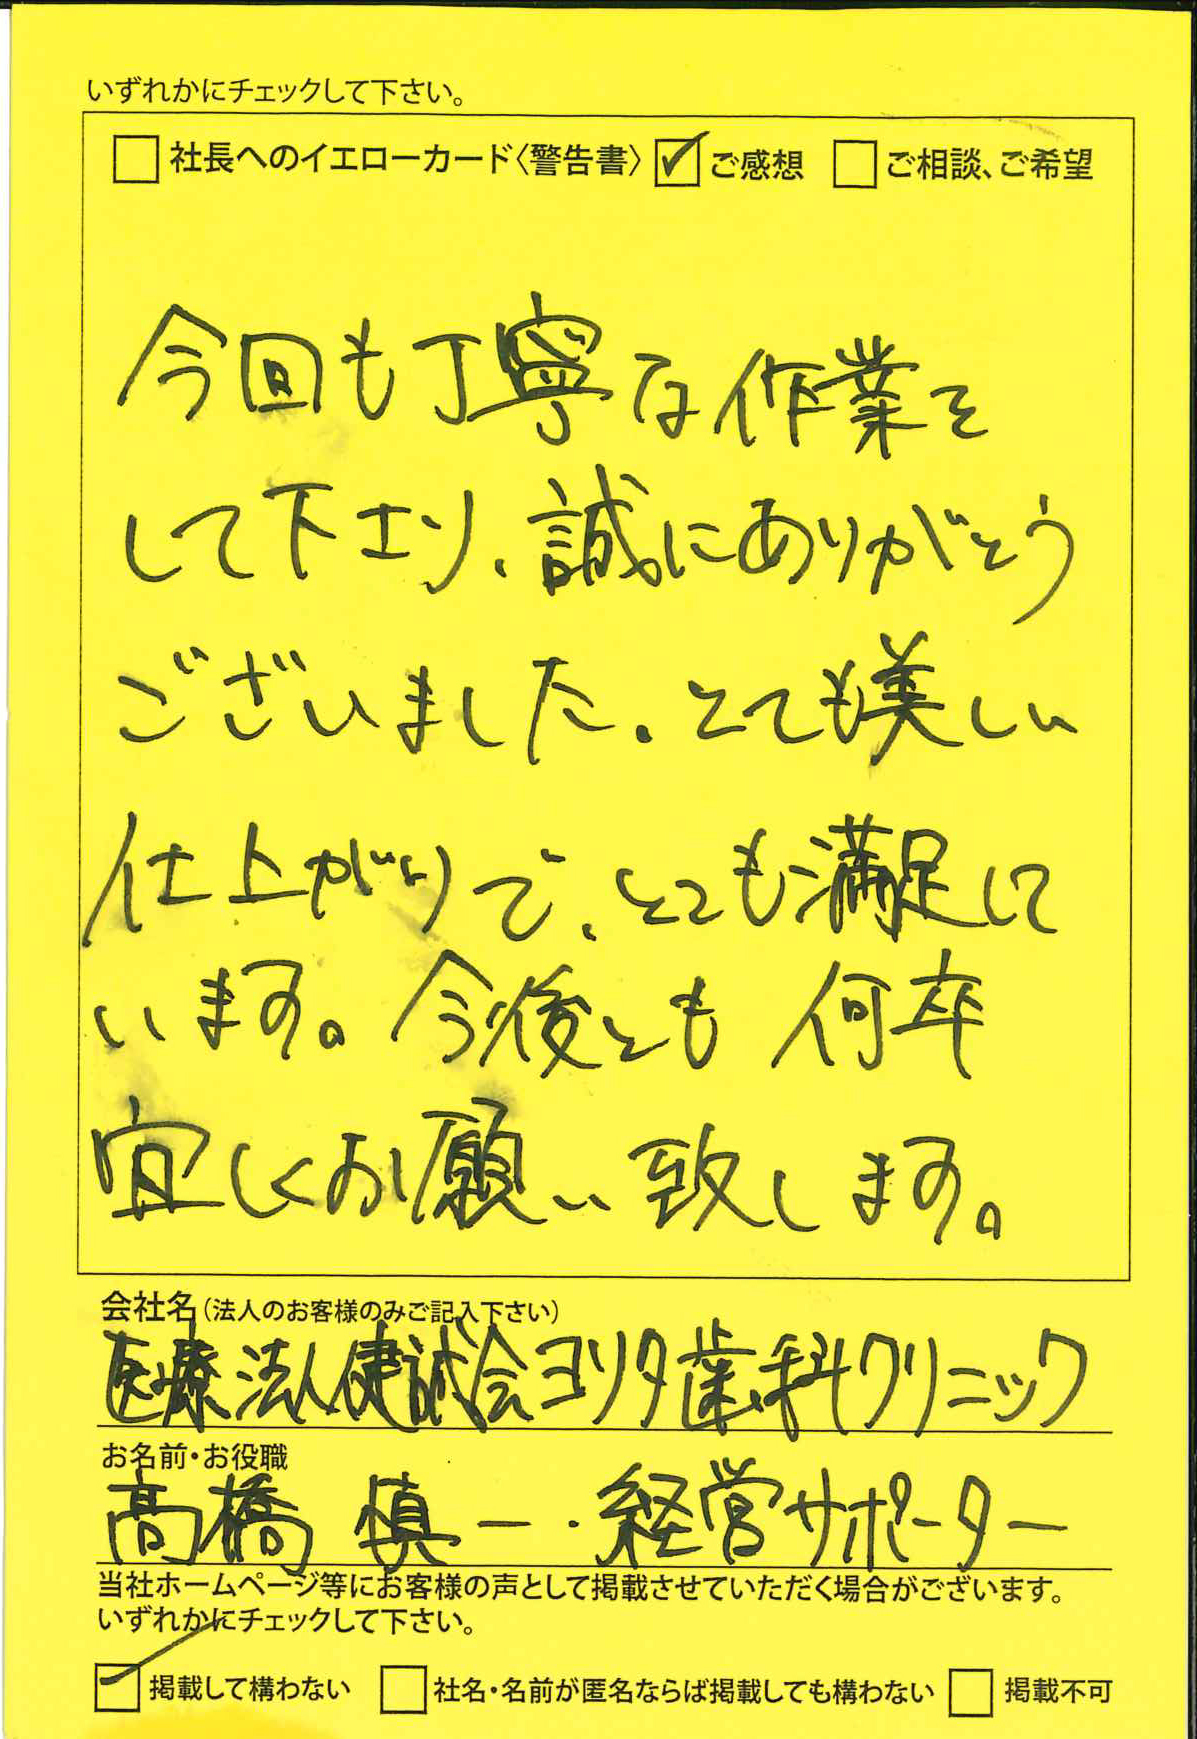 いずれかにチェックして下さい。
社長へのイエローカード〈警告書〉 ✓ご感想 ご相談、ご希望
今回も丁寧な作業を
して下さり、誠にありがとう
ございました。とても美しい
仕上がりで、とても満足して
います。今後とも何卒
宜しくお願い致します。
会社名(法人のお客様のみご記入下さい)
医療法人健誠会ヨリタ歯科クリニック
お名前・お役職
高橋 慎一・経営サポーター
当社ホームページ等にお客様の声として掲載させていただく場合がございます。
いずれかにチェックして下さい。
✓掲載して構わない 社名・名前が匿名ならば掲載しても構わない 掲載不可